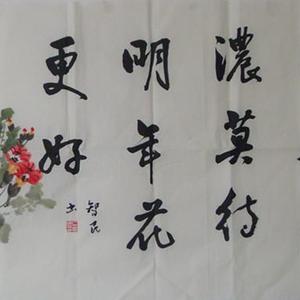 濃莫待
明年花
更好
智民
书